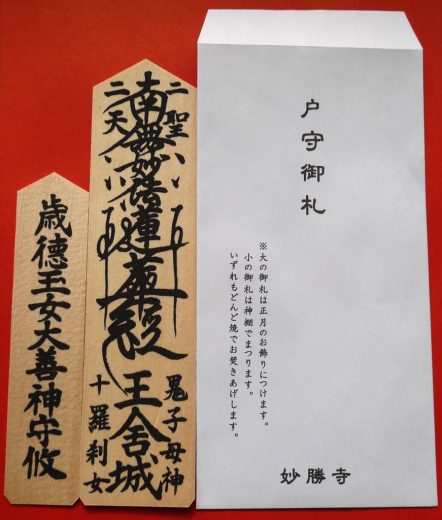 戸守御札
※大の御札は正月のお飾りにつけます。
小の御札は神棚でまつります。
いずれもどんど焼でお焚きあげします。
妙勝寺
二聖
南無妙法蓮華経
二天
王舎城
鬼子母神
十羅刹女
歳徳玉女大善神守攸